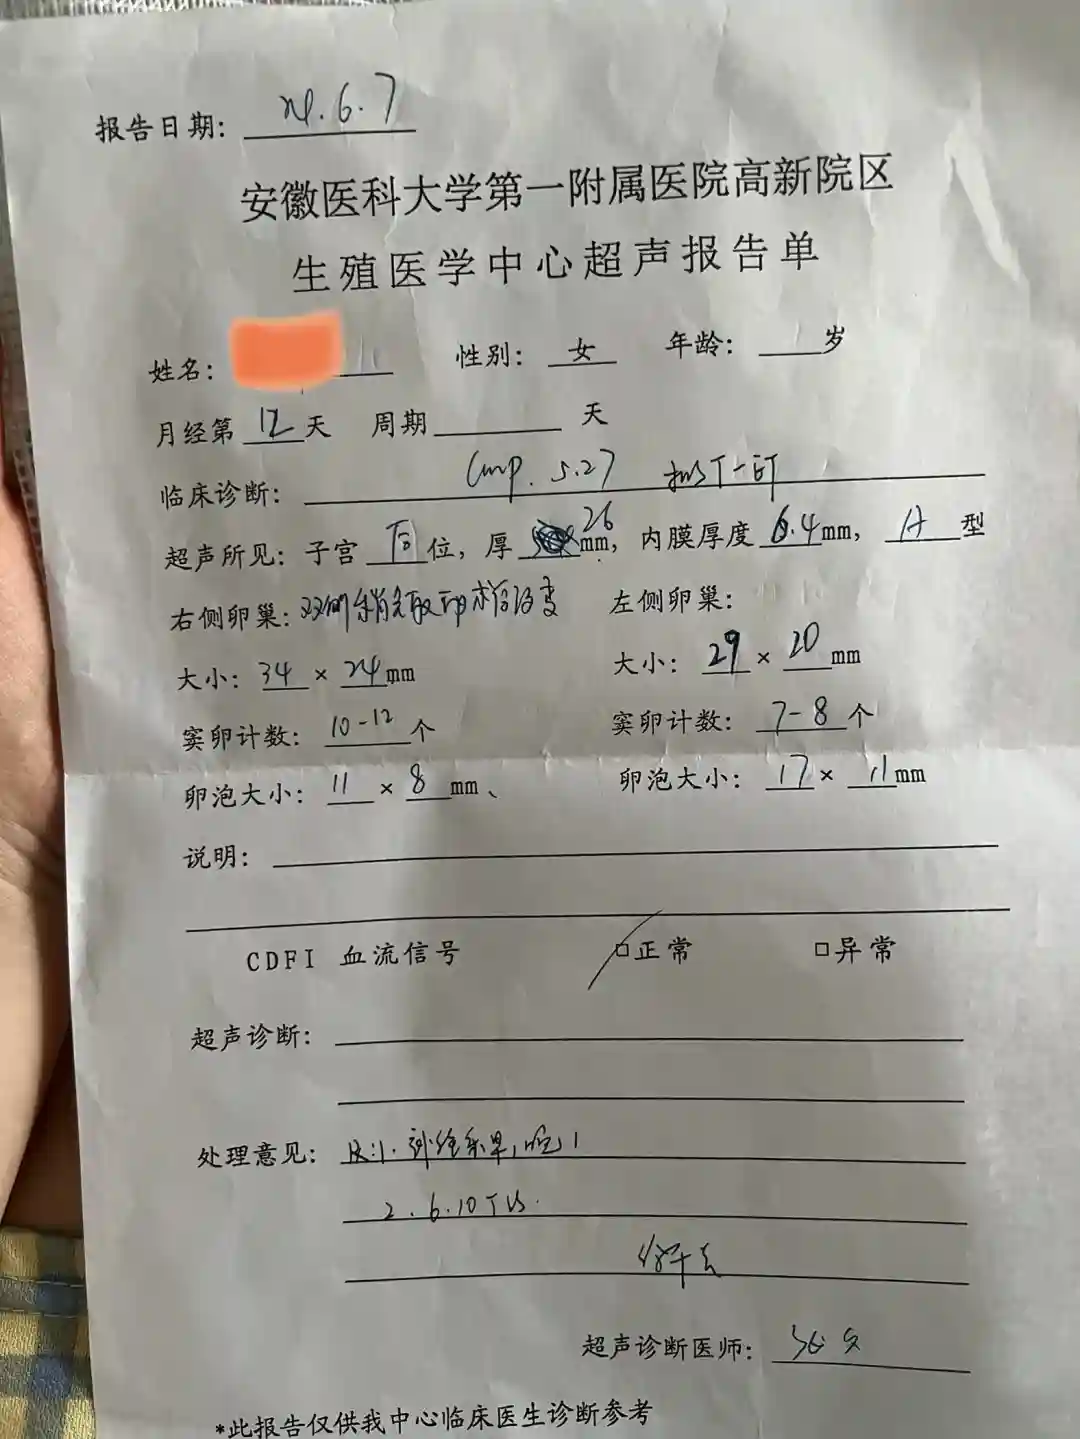 报告日期: 24.6.7
安徽医科大学第一附属医院高新院区
生殖医学中心超声报告单
姓名: 性别: 女 年龄: 岁
月经第 12 天 周期 天
临床诊断: Lmp. 5.27 拟行T-ET
超声所见: 子宫 后 位, 厚 26 mm, 内膜厚度 6.4 mm, A 型
右侧卵巢: 双侧 取卵术后改变 左侧卵巢:
大小: 34 × 24 mm 大小: 29 × 20 mm
窦卵计数: 10-12 个 窦卵计数: 7-8 个
卵泡大小: 11 × 8 mm、 卵泡大小: 17 × 11 mm
说明:
CDFI 血流信号 □正常 □异常
超声诊断:
处理意见: 1.
2. 6.10 TVS.
超声诊断医师:
*此报告仅供我中心临床医生诊断参考